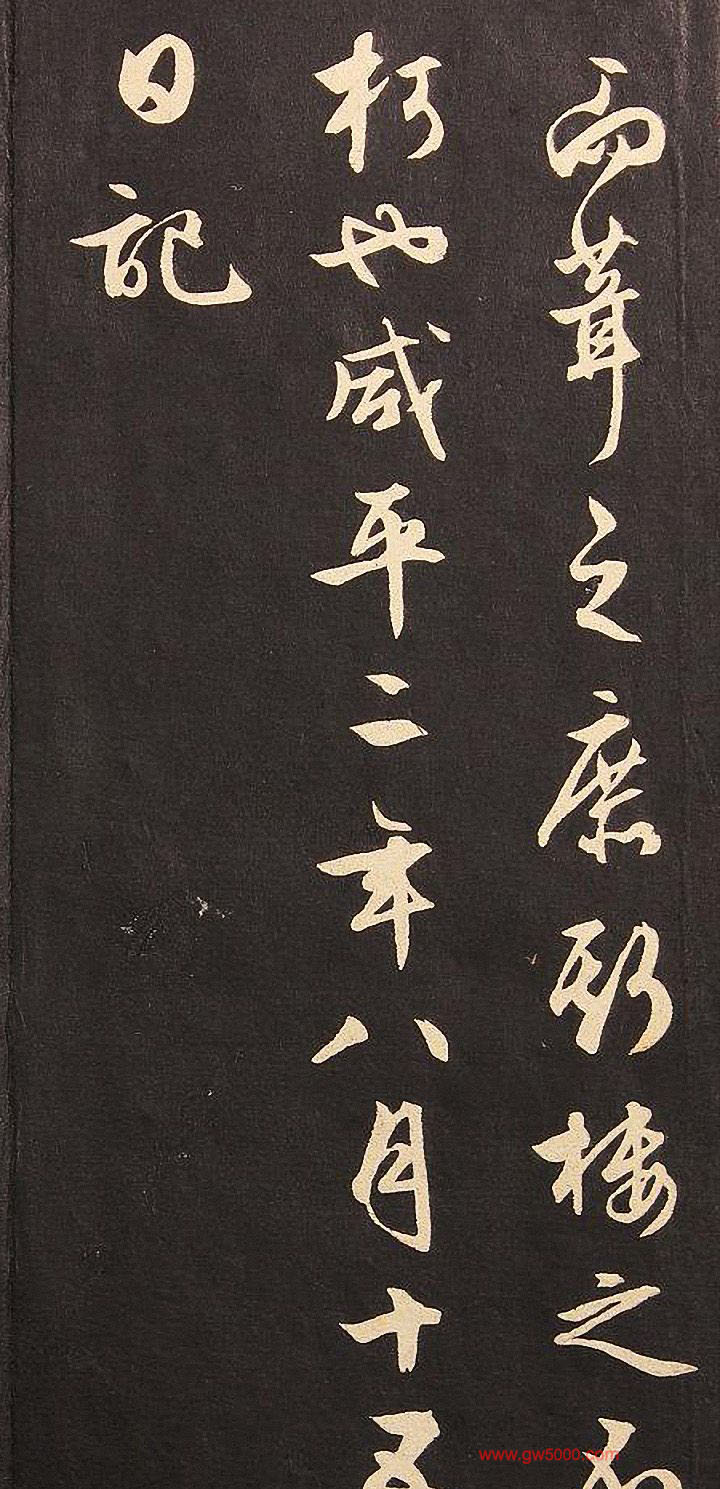 而葺之庶斯樓之不
朽也咸平二年八月十五
日記
www.gw5000.com